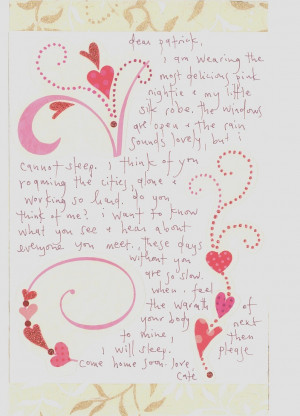 dear patrick,
i am wearing the
most delicious pink
nightie & my little
silk robe. the windows
are open & the rain
sounds lovely, but i
cannot sleep. i think of you
roaming the cities alone &
working so hard. do you
think of me? i want to know
what you see & hear about
everyone you meet. these days
without you
are so slow.
when i feel
the warmth of
your body next
to mine, then
i will sleep. please
come home soon. love,
cate